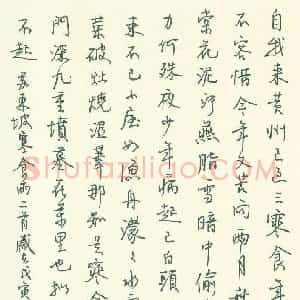 自我来黄州已过三寒食年
不容惜今年又苦雨两月秋
棠花泥污燕脂雪暗中偷
力何殊少年病起已白頭
来不已小屋如渔舟濛濛水
菜破灶燒濕葦那知是寒食
門深九重墳墓在萬里也拟
不起 苏東坡寒食雨二首歲在戊寅
Shufaziliao.com